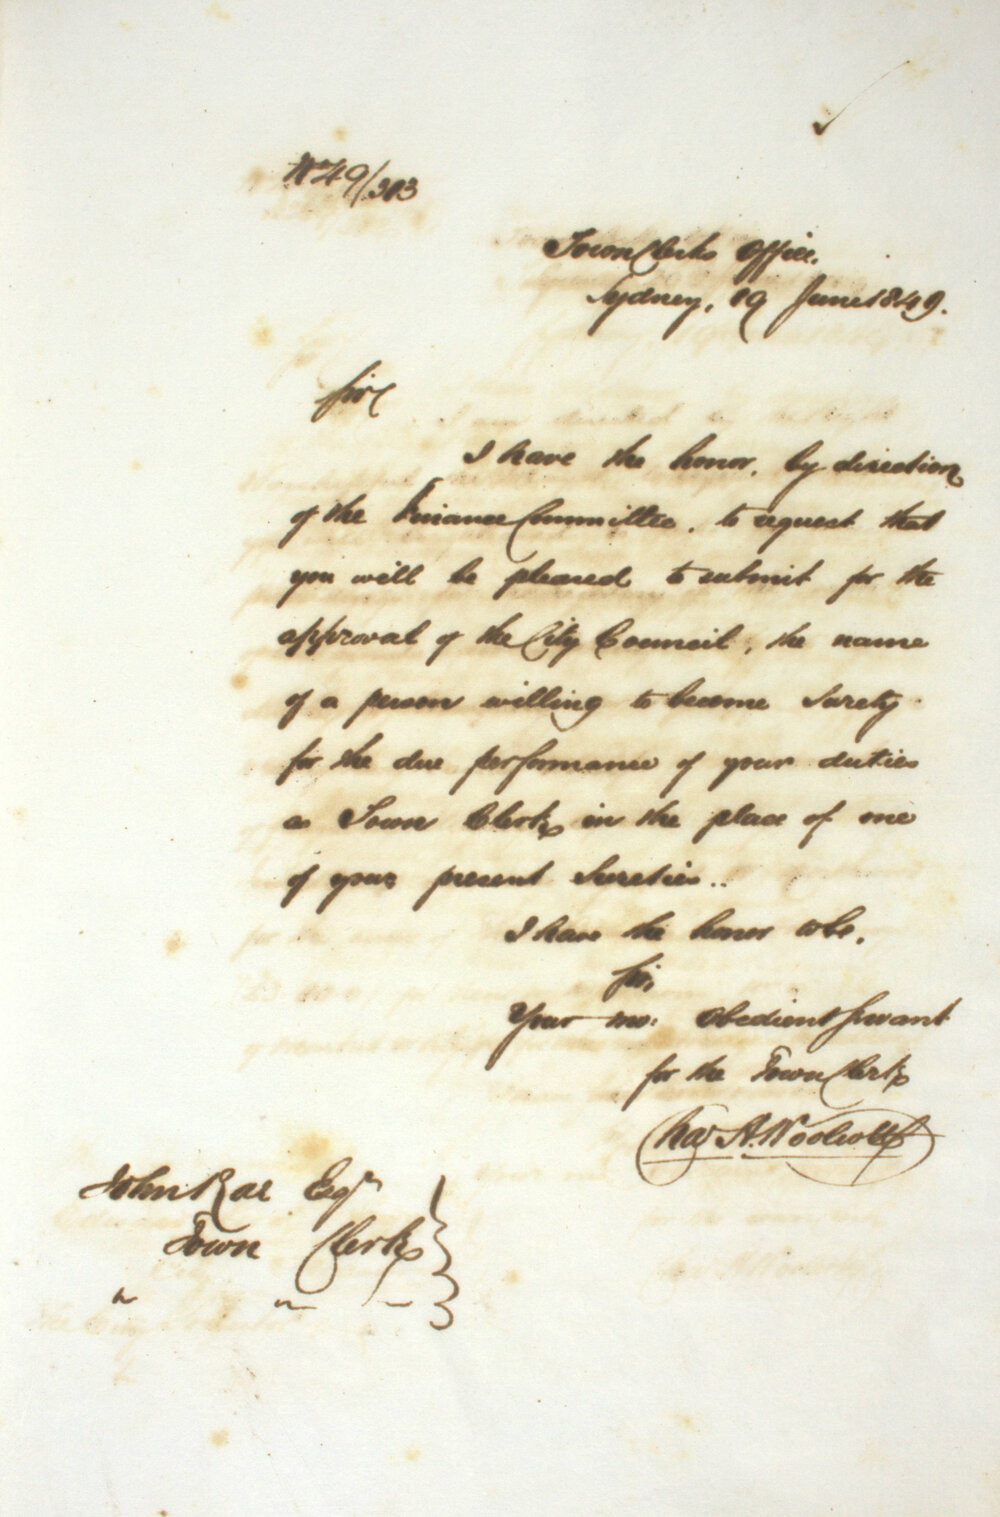 No 49/303
Town Clerks Office.
Sydney, 19 June 1849.
Sir
I have the honor, by direction
of the Finance Committee, to request that
you will be pleased to submit for the
approval of the City Council, the name
of a person willing to become Surety
for the due performance of your duties
as Town Clerk in the place of one
of your present Sureties..
I have the honor to be,
Sir,
Your mo: Obedient Servant
for the Town Clerk
Chas A. Woolcott
John Rae Esqr
Town Clerk
" " "